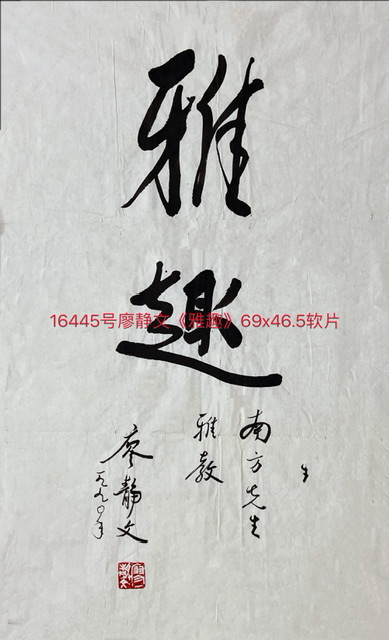 雅
趣
16445号廖静文《雅趣》69x46.5软片
南方先生
雅教
廖静文
一九九〇年